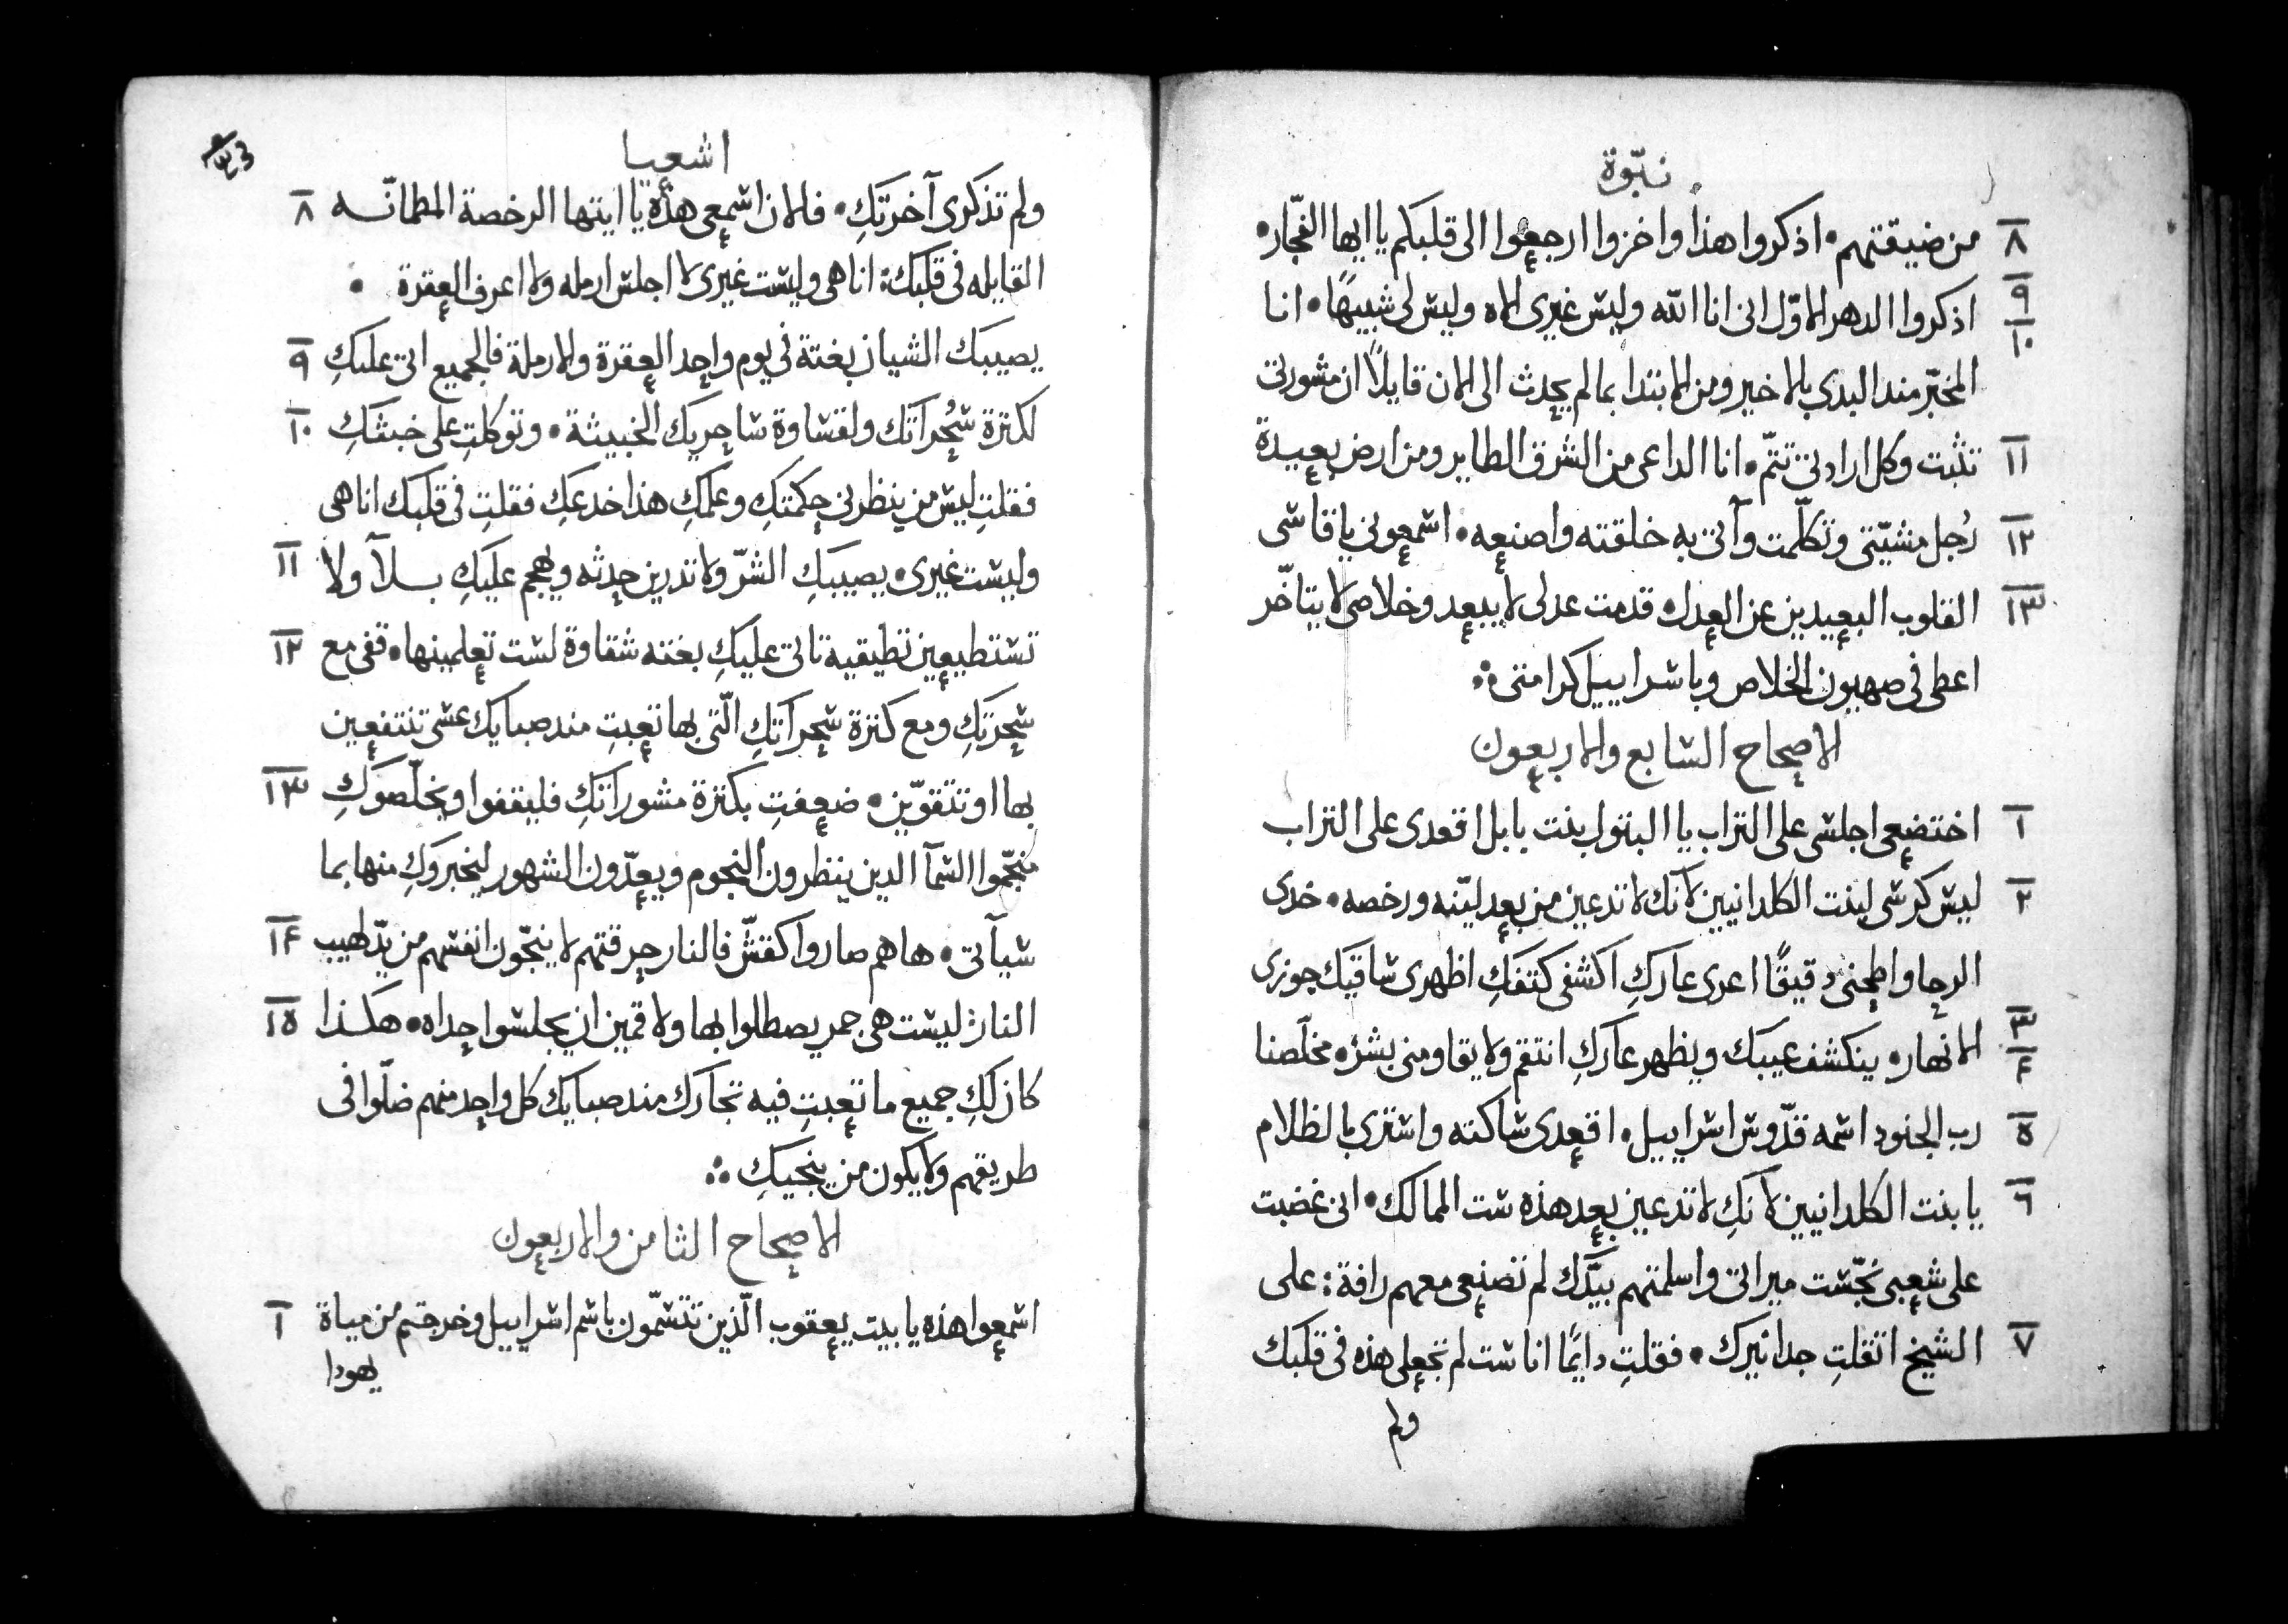 نبّوة
٨ من ضيقتهم • اذكروا هذا واخزوا ارجعوا الى قلبكم يا ايها الفجّار •
٩ اذكروا الدهر الاوّل انى انا الله وليس غيرى الاه وليس لى شبيهًا • ١٠ انا
المخبّر مند البدي بالاخير ومن الابتدا بما لم يحدث الى الان قايلًا ان مشورتى
١١ تثبت وكل ارادتى تتمّ • انا الداعى من الشرق الطاير ومن ارض بعيدة
١٢ رُجل مشيّتى وتكلّمت وآتى به خلقته واصنعه • اسمعونى يا قاسى
١٣ القلوب البعيدين عن العدل • قدمت عدلى لا يبعد وخلاصى لا يتاخّر
اعطى فى صهيون الخلاص وباسراييل كرامتى ⁘
الاصحاح السابع والاربعون
١ اختضعى اجلسى على التراب يا البتول بنت بابل اقعدى على التراب
٢ ليس كرسى لبنت الكلدانيين لآنك لا تدعين من بعد ليّنه ورخصه • خدى
الرحا واطحنى دقيقًا اعرى عاركِ اكشفى كتفكِ اظهرى ساقيك جوزى
٣ الانهار • ينكشف عيبك ويظهر عاركِ انتقم ولا يقاومنى بشر • ٤ مخلّصنا
٥ رب الجنود اسمه قدّوس اسراييل • اقعدى ساكته واستترى بالظلام
٦ يا بنت الكلدانيين لانكِ لا تدعين بعد هذه ست الممالك • انى غضبت
على شعبى نجّست ميراتى واسلمتهم بيدّك لم تصنعى معهم رافة : على
٧ الشيخ اثقلتِ جدا نيرك • فقلتِ دايمًا انا ست لم تجعلى هذه فى قلبك
ولم
اشعيا
٨ ولم تذكرى آخرتكِ • فالان اسمعى هذه يا ايتها الرخصة المطمانّه
القايله فى قلبك : انا هى وليست غيرى لا اجلس ارمله ولا اعرف العقرة •
٩ يصيبك الشيان بغتة فى يوم واحد العقرة والارملة فالجميع اتى عليكِ
١٠ لكثرة سُحراتك ولقساوة ساحريك الخبيثة • وتوكلتِ على خبثكِ
فقلتِ ليس من ينظرنى حكمتكِ وعلمكِ هذا خدعكِ فقلتِ فى قلبك انا هى
١١ وليست غيرى • يصيبكِ الشرّ ولا تدرين حدثه ويهجم عليكِ بلآ ولا
١٢ تستطيعين تطيقيه تاتى عليكِ بغته شقاوة لست تعلمينها • قفى مع
سحرتكِ ومع كثرة سحراتكِ الّتى بها تعبتِ مند صبايك عسى تنتفعين
١٣ بها او تتقوّين • ضعفتِ بكثرة مشوراتكِ فليقفوا ويخلّصوكِ
منجّموا السّمآ الدين ينظرون النجوم ويعدّون الشهور ليخبروكِ منها بما
١٤ سيآتى • ها هم صاروا كقشّ فالنار حرقتهم لا ينجّون انفسهم من يدّ لهيب
١٥ النار : ليست هى جمر يصطلوا بها ولا قمين ان يجلسوا حداه • هكذا
كان لكِ جميع ما تعبتِ فيه تجارك مند صبايك كل واحد منهم ضلّوا فى
طريقهم ولا يكون من ينجيكِ ⁘
الاصحاح الثامن والاربعون
١ اسمعوا هذه يا بيت يعقوب الّذين تتسمّون باسم اسراييل وخرجتم من مياة
يهودا